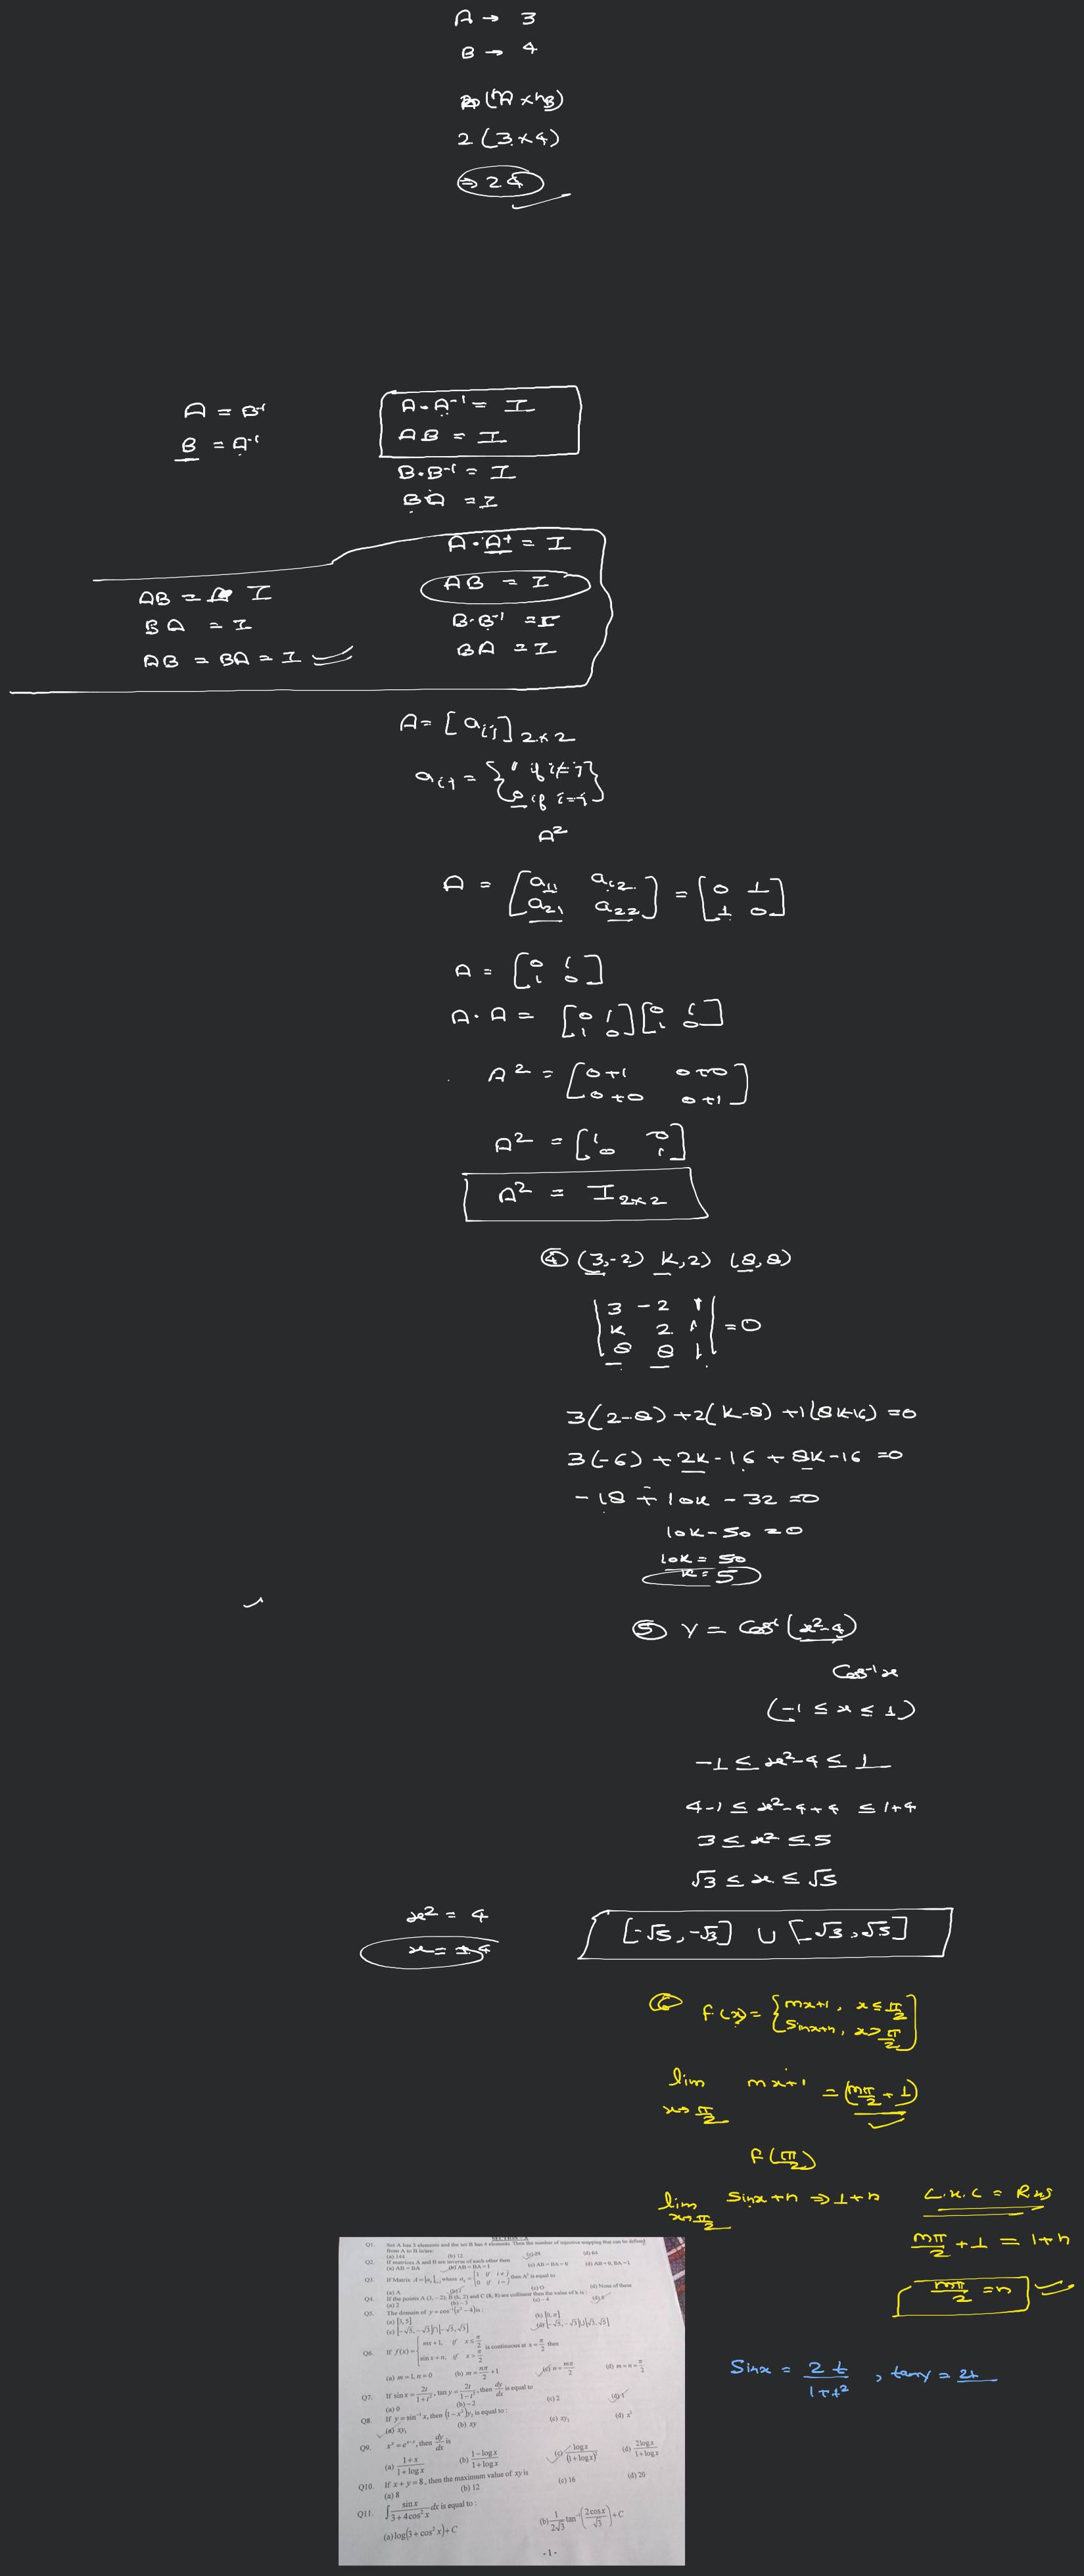 A → 3
B → 4
(nA × nB)
2 (3 × 4)
⇒ 24
A = B⁻¹
B = A⁻¹
A · A⁻¹ = I
AB = I
B · B⁻¹ = I
BA = I
A · A⁺ = I
AB = I
B · B⁻¹ = I
BA = I
AB = I
BA = I
AB = BA = I
A = [aij] 2×2
aij = { 1 if i≠j }
{ 0 if i=j }
A²
A = [a11 a12 a21 a22] = [0 1 1 0]
A = [0 1 1 0]
A · A = [0 1 1 0] [0 1 1 0]
A² = [0+1 0+0 0+0 0+1]
A² = [1 0 0 1]
A² = I 2×2
④ (3,-2) K,2) (8,8)
| 3 -2 1 |
| K 2 1 | = 0
| 8 8 1 |
3(2-8) + 2(K-8) + 1(8K-16) = 0
3(-6) + 2K - 16 + 8K - 16 = 0
-18 + 10K - 32 = 0
10K - 50 = 0
10K = 50
K = 5
⑤ Y = Cos⁻¹ (x²-4)
Cos⁻¹x
(-1 ≤ x ≤ 1)
-1 ≤ x²-4 ≤ 1
4-1 ≤ x²-4+4 ≤ 1+4
3 ≤ x² ≤ 5
√3 ≤ x ≤ √5
x² = 4
x = ±4
[-√5, -√3] ∪ [√3, √5]
⑥ f(x) = { mx+1, x ≤ π/2
{ Sinx+n, x > π/2
lim x→π/2 mx+1 = (mπ/2 + 1)
f(π/2)
lim x→π/2 Sinx+n ⇒ 1+n
L.H.L = RHS
mπ/2 + 1 = 1+n
mπ/2 = n
Sinx = 2t/1+t² , tany = 2t
SECTION - A
Q1. Set A has 3 elements and the set B has 4 elements. Then the number of injective mapping that can be defined
from A to B is/are:
(a) 144 (b) 12 (c) 24 (d) 64
Q2. If matrices A and B are inverse of each other then
(a) AB = BA (b) AB = BA = I (c) AB = BA = 0 (d) AB = 0, BA = I
Q3. If Matrix A = [aij]2×2 where aij = {1 if i ≠ j, 0 if i = j} then A² is equal to
(a) A (b) I (c) O (d) None of these
Q4. If the points A (3, -2), B (k, 2) and C (8, 8) are collinear then the value of k is :
(a) 2 (b) -3 (c) -4 (d) 5
Q5. The domain of y = cos⁻¹(x² - 4) is :
(a) [3, 5] (b) [0, π]
(c) [-√5, -√3] ∩ [-√5, √3] (d) [-√5, -√3] ∪ [√3, √5]
Q6. If f(x) = { mx + 1, if x ≤ π/2; sin x + n, if x > π/2 is continuous at x = π/2 then
(a) m = 1, n = 0 (b) m = nπ/2 + 1 (c) n = mπ/2 (d) m = n = π/2
Q7. If sin x = 2t/1+t², tan y = 2t/1-t², then dy/dx is equal to
(a) 0 (b) -2 (c) 2 (d) 1
Q8. If y = sin⁻¹ x, then (1 - x²)y₂ is equal to :
(a) xy₁ (b) xy (c) xy₂ (d) x²
Q9. xʸ = eˣ⁻ʸ, then dy/dx is
(a) 1+x/1+log x (b) 1-log x/1+log x (c) log x/(1+log x)² (d) 2log x/1+log x
Q10. If x + y = 8, then the maximum value of xy is
(a) 8 (b) 12 (c) 16 (d) 20
Q11. ∫ sin x/3+4cos² x dx is equal to :
(a) log(3 + cos² x) + C (b) 1/2√3 tan⁻¹(2cos x/√3) + C
- 1 -